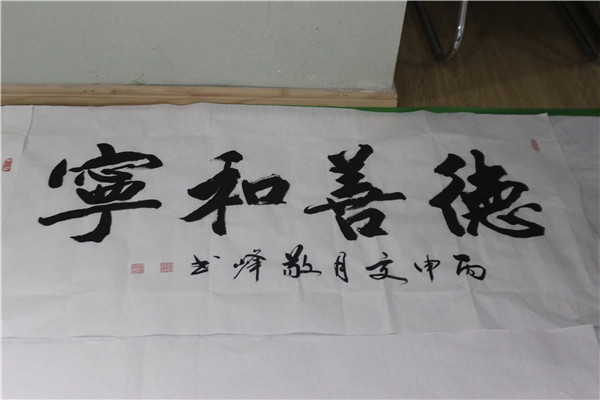 德善和寧
丙申夏月敬峰书